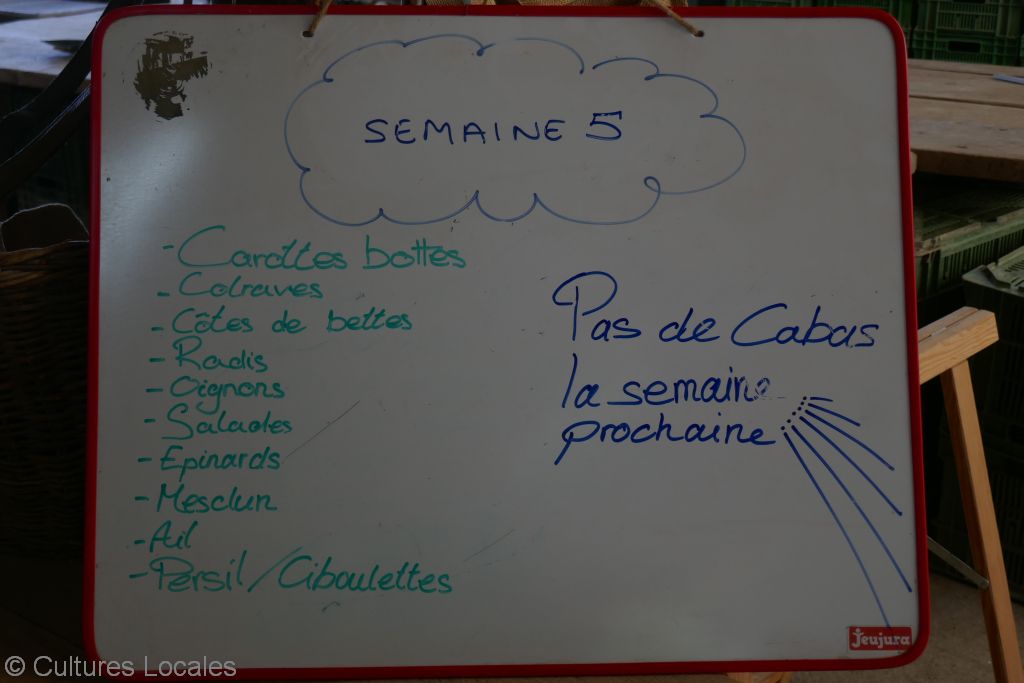 SEMAINE 5
- Carottes bottes
- Colraves
- Côtes de bettes
- Radis
- Oignons
- Salades
- Epinards
- Mesclun
- Ail
- Persil / Ciboulettes
Pas de Cabas
la semaine
prochaine
Jeujura
© Cultures Locales